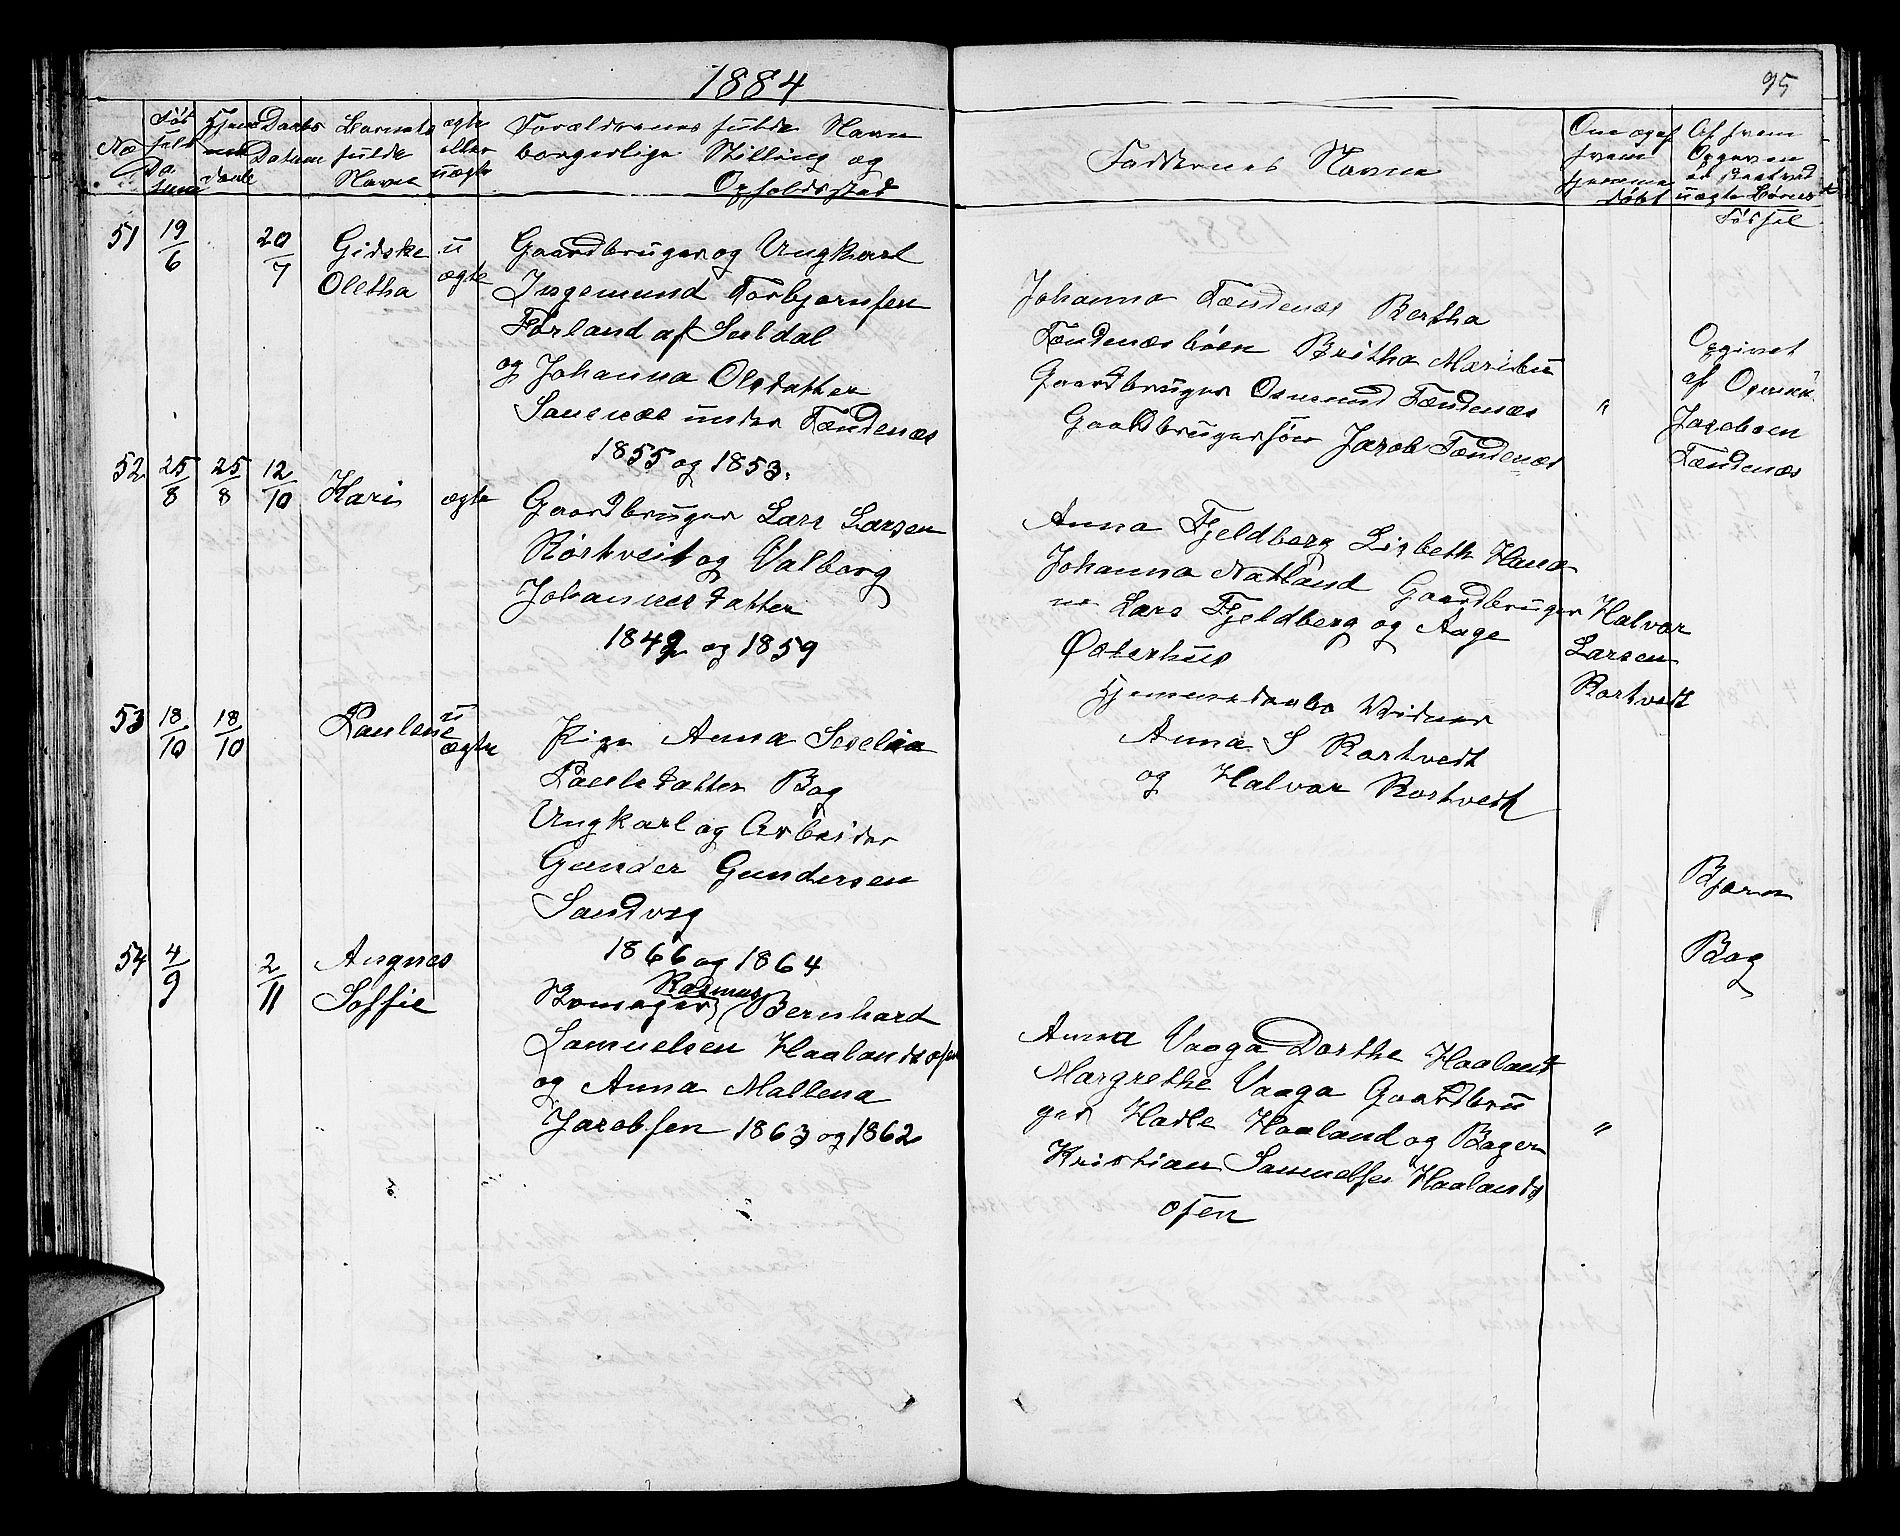 1884
95
No
Fød
sels
Da
tum
Hjem
me
daab
Daabs
Datum
Barnets
fulde
Navn
ægte
eller
uægte
Forældrenes fulde Navn
borgerlige Stilling og
Opholdssted
Faddernes Navne
Om og af
hvem
hjemme
døbt
Af hvem
Opgiven
er skeet ved
uægte Børns
Fødsel
51 19/6 20/7 Gidske
Oletha
u
ægte
Gaardbruger og Ungkarl
Ingemund Torbjørnsen
Førland af Suldal
og Johanna Olsdatter
Sannæs under Tændenæs
1855 og 1853.
Johanna Tændenæs Bertha
Tændenæsbøen Britha Mæribu
Gaardbruger Osmund Tændenæs
Gaardbrugersøn Jacob Tændenæs
"
Opgivet
af Osmun
Jacobsen
Tændenæs
52 25/8 25/8 12/10 Kari ægte
Gaardbruger Lars Larsen
Rørtveit og Valborg
Johannesdatter
1842 og 1859
Anna Fjeldberg Lisbeth Hana
Johanna Natland Gaardbruger
ne Lars Fjeldberg og Aage
Østerhus
Halvor
Larsen
Rørtvedt
53 18/10 18/10 Paulene
u
ægte
Pige Anna Serelia
Paulsdatter Bog
Ungkarl og Arbeider
Gunder Gundersen
Sandvig
1866 og 1864
Hjemmedaabs Vidner
Anna S Rørtvedt
og Halvor Rørtvedt
Bjørn
Bog
54 4/9 2/11 Augnes
Soffie
Rasmus
Skomager Bernhard
Samuelsen Haalandsosen
og Anna Mallena
Jacobsen 1863 og 1862
Anna Vaaga Dorthe Haaland
Margrethe Vaaga Gaardbru
ger Hadle Haaland og Bager
Kristian Samuelsen Haalands
osen
"